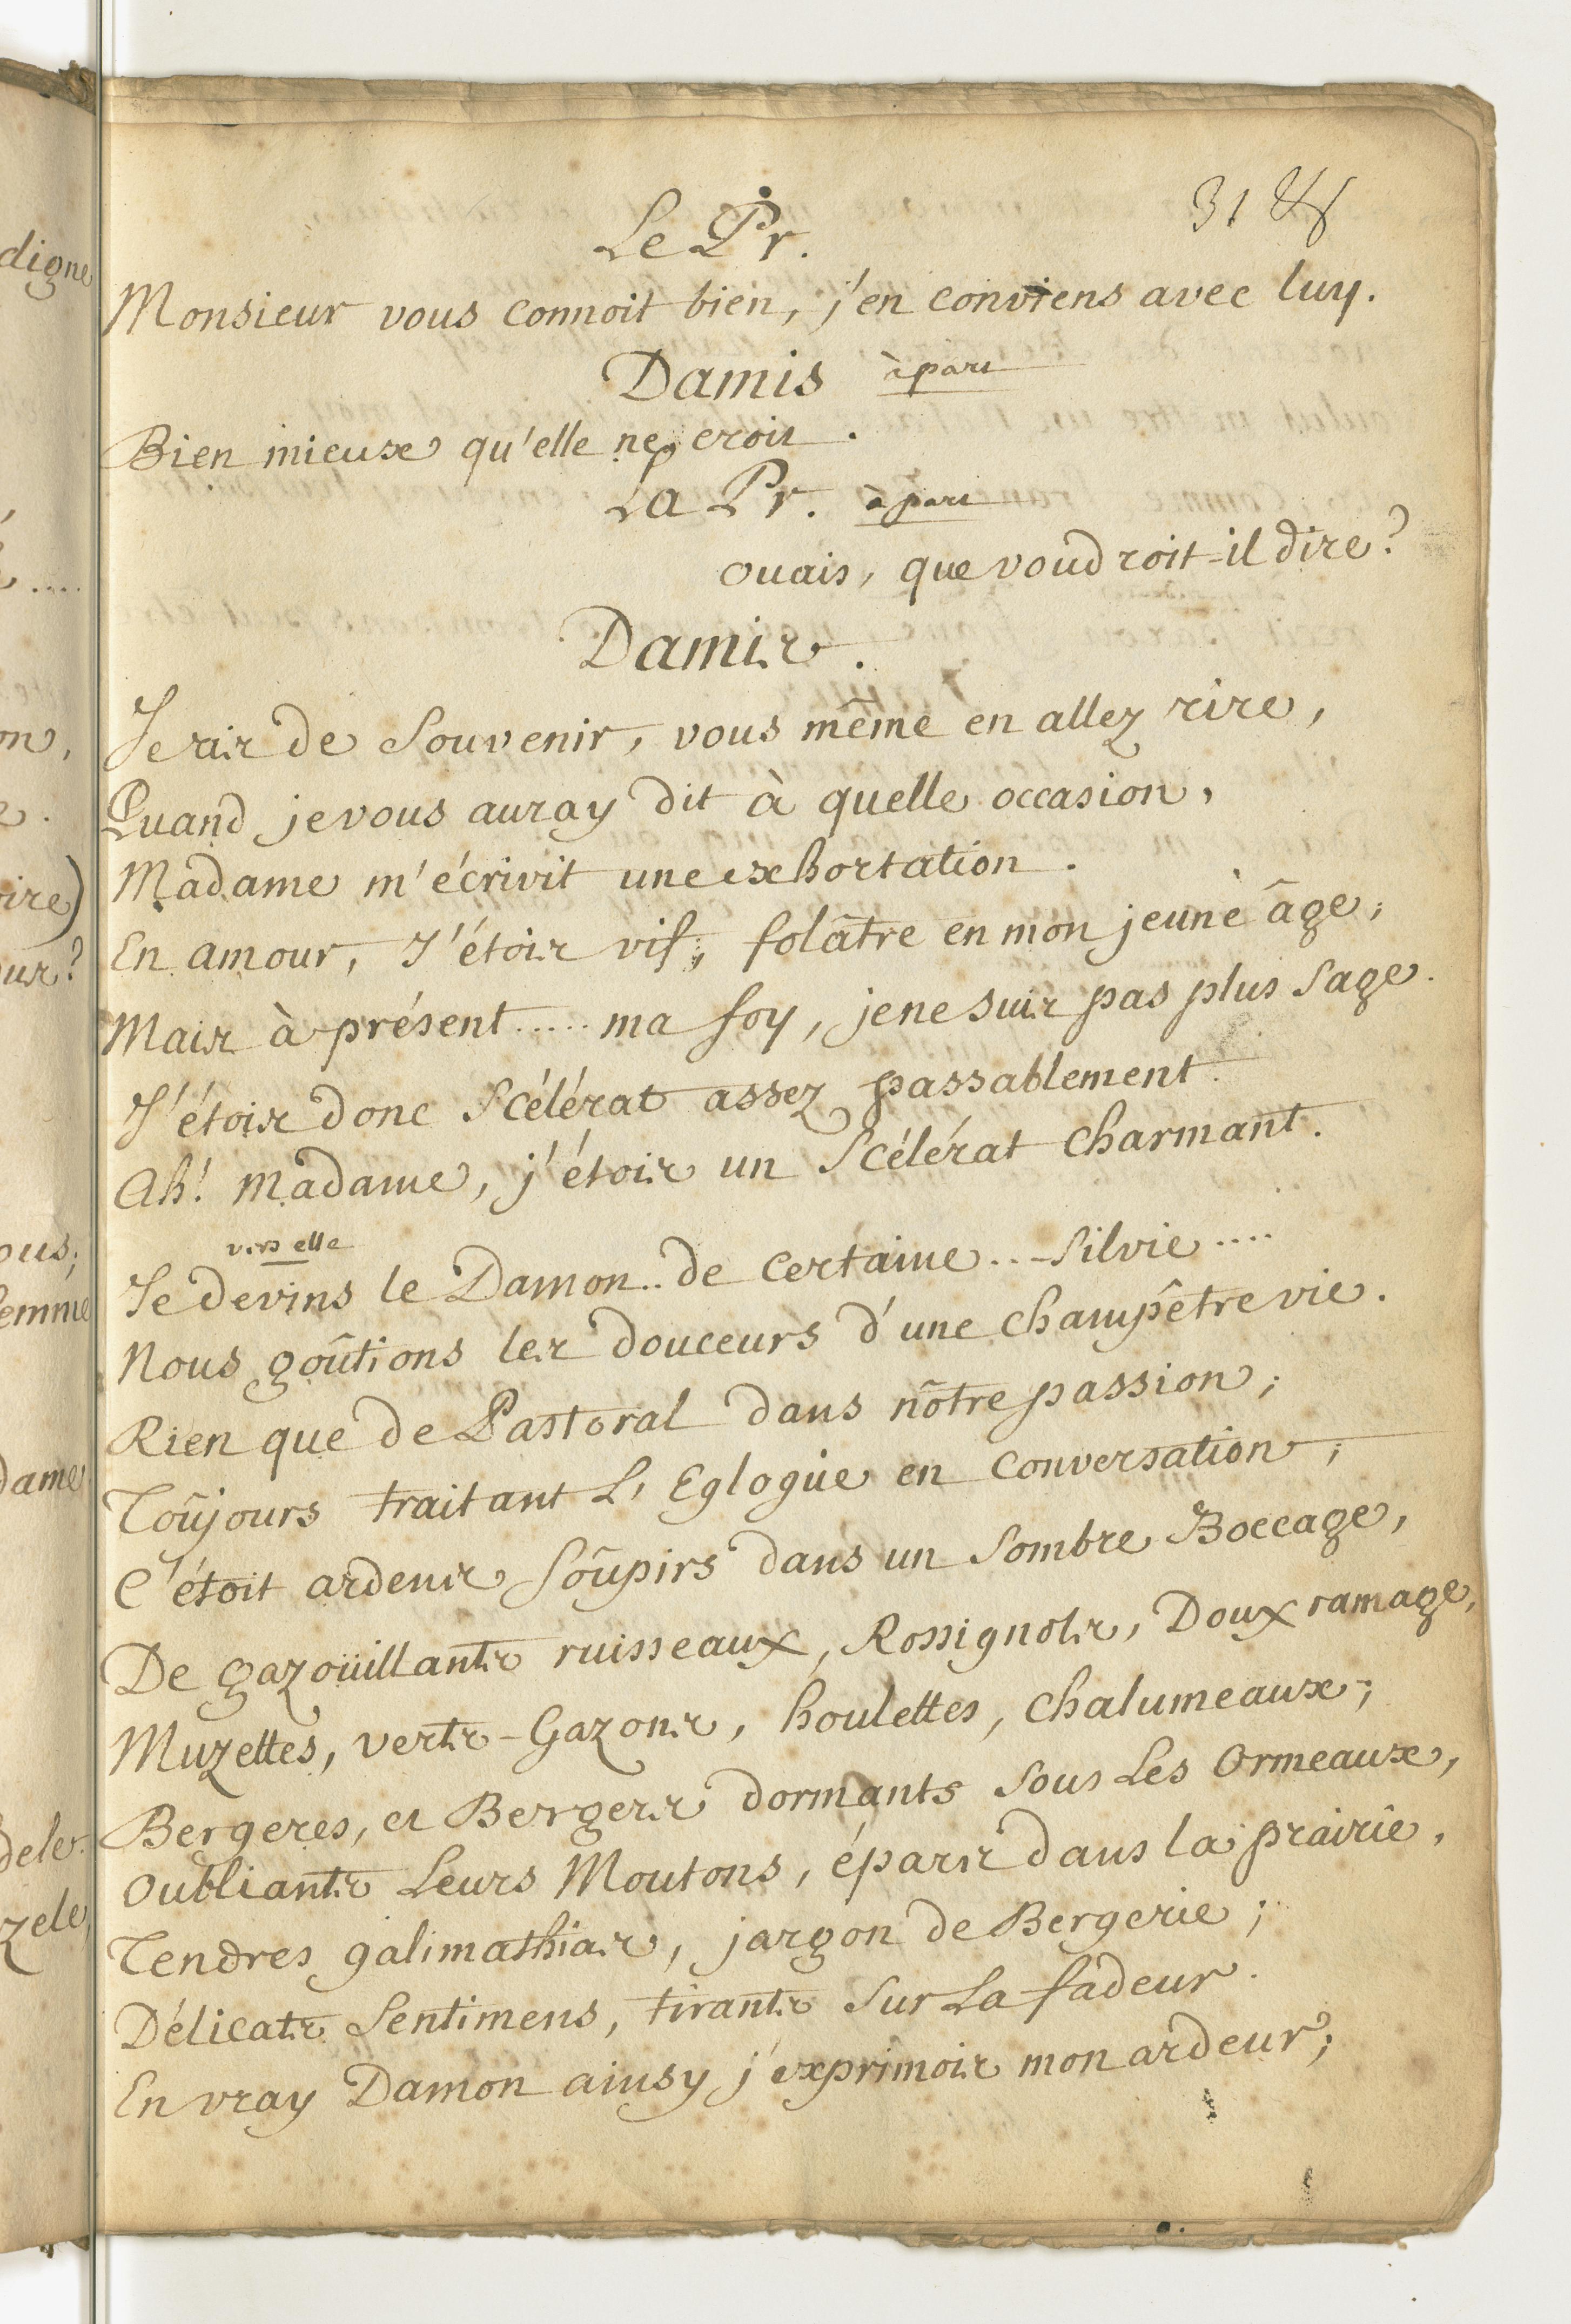 31
Le Pr.
Monsieur vous connoit bien, j'en conviens avec luy.
Damis à part
Bien mieux qu'elle ne croit.
La Pr. à part
ouais, que voudroit-il dire?
Damis.
Je ris de souvenir, vous même en allez rire,
Quand je vous auray dit à quelle occasion,
Madame m'écrivit une exhortation.
En amour, J'étois vif, folâtre en mon jeune âge;
Mais à présent..... ma foy, je ne suis pas plus sage.
J'étois donc Scélérat assez passablement.
Ah! Madame, j'étois un Scélérat charmant.
vers elle
Je devins le Damon.. de certaine... Silvie....
Nous goûtions les douceurs d'une champêtre vie.
Rien que de Pastoral dans nôtre passion;
Toûjours traitant L'Eglogüe en conversation;
C'étoit ardens soûpirs dans un sombre Boccage,
De gazoüillants ruisseaux, Rossignols, Doux ramage,
Muzettes, verts-Gazons, houlettes, chalumeaux;
Bergeres, et Bergers dormants sous Les Ormeaux,
oubliants Leurs Moutons, épars dans la prairie,
Tendres galimathias, jargon de Bergerie;
Délicats Sentimens, tirants sur La fadeur.
En vray Damon ainsy j'exprimois mon ardeur;
digne
on,
ire)
ur?
ous;
femme
dame
dele.
zele,